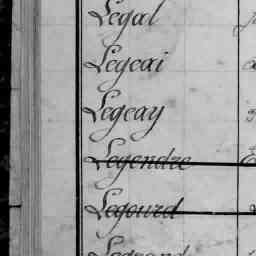 Legal
Legeai
Legeay
Legendre
Legourd
Legrand